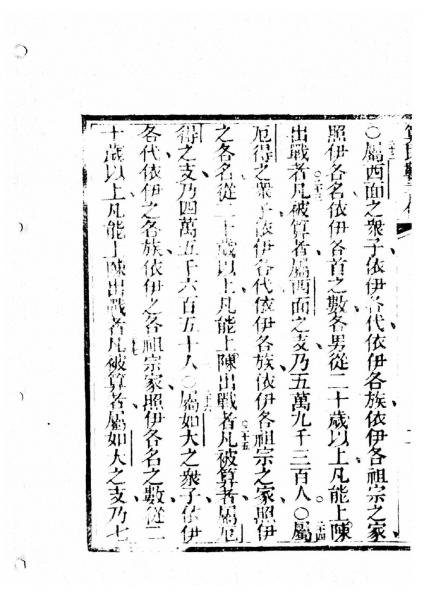 ○屬西面之衆子依伊各代依伊各族依伊各祖宗之家
照伊各名依伊各首之數各男從二十歲以上凡能上陳
出戰者凡被算者屬西面之支乃五萬九千三百人○屬
厄得之衆子依伊各代依伊各族依伊各祖宗之家照伊
之各名從二十歲以上凡能上陳出戰者凡被算者屬厄
得之支乃四萬五千六百五十人○屬如大之衆子依伊
各代依伊之各族依伊之各祖宗家照伊各名之數從二
十歲以上凡能上陳出戰者凡被算者屬如大之支乃七